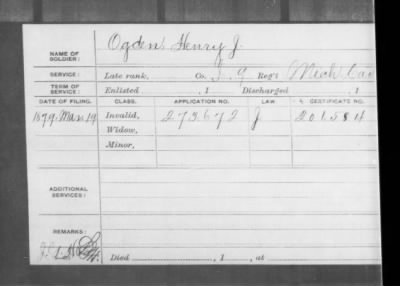 NAME OF SOLDIER: Ogden, Henry J.
SERVICE: Late rank, Co. I, 9 Reg't Mich. Cav
TERM OF SERVICE: Enlisted , 1 Discharged , 1
DATE OF FILING. CLASS. APPLICATION NO. LAW CERTIFICATE NO.
1879. Mar. 19 Invalid, 273672 J 201584
Widow,
Minor,
ADDITIONAL SERVICES:
REMARKS:
Died , 1 , at